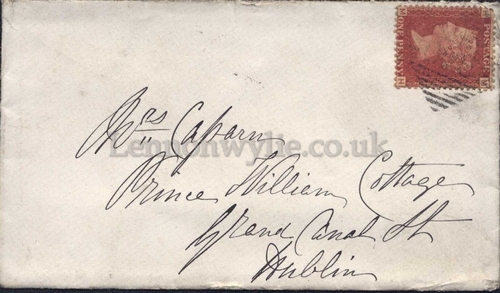 Mrs Caparn
Prince William Cottage
Grand Canal St
Dublin
Lennonwylie.co.uk
POSTAGE
ONE PENNY